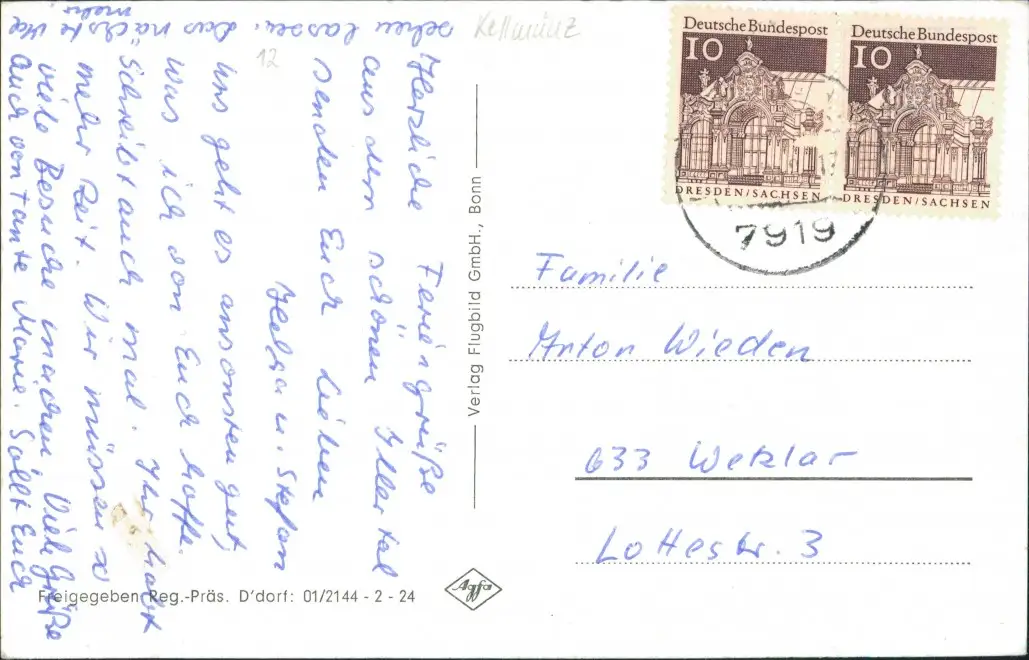 Herzliche Feriengrüße
aus dem schönen Illertal
senden Euch lieben
Helga u. Stefan
Uns geht es ansonsten gut,
was ich von Euch hoffe.
Schreibt auch mal. Ihr habt
mehr Zeit. Wir müssen so
viele Besuche machen. Viele Grüße
auch von Tante Marie. Sollt Euch
sehen lassen. Das nächste
mehr
Kellmünz
12
Deutsche Bundespost
10
DRESDEN/SACHSEN
Deutsche Bundespost
10
DRESDEN/SACHSEN
7919
Verlag Flugbild GmbH., Bonn
Familie
Anton Wieden
633 Wetzlar
Lottestr. 3
Freigegeben Reg.-Präs. D'dorf: 01/2144 - 2 - 24
Agfa